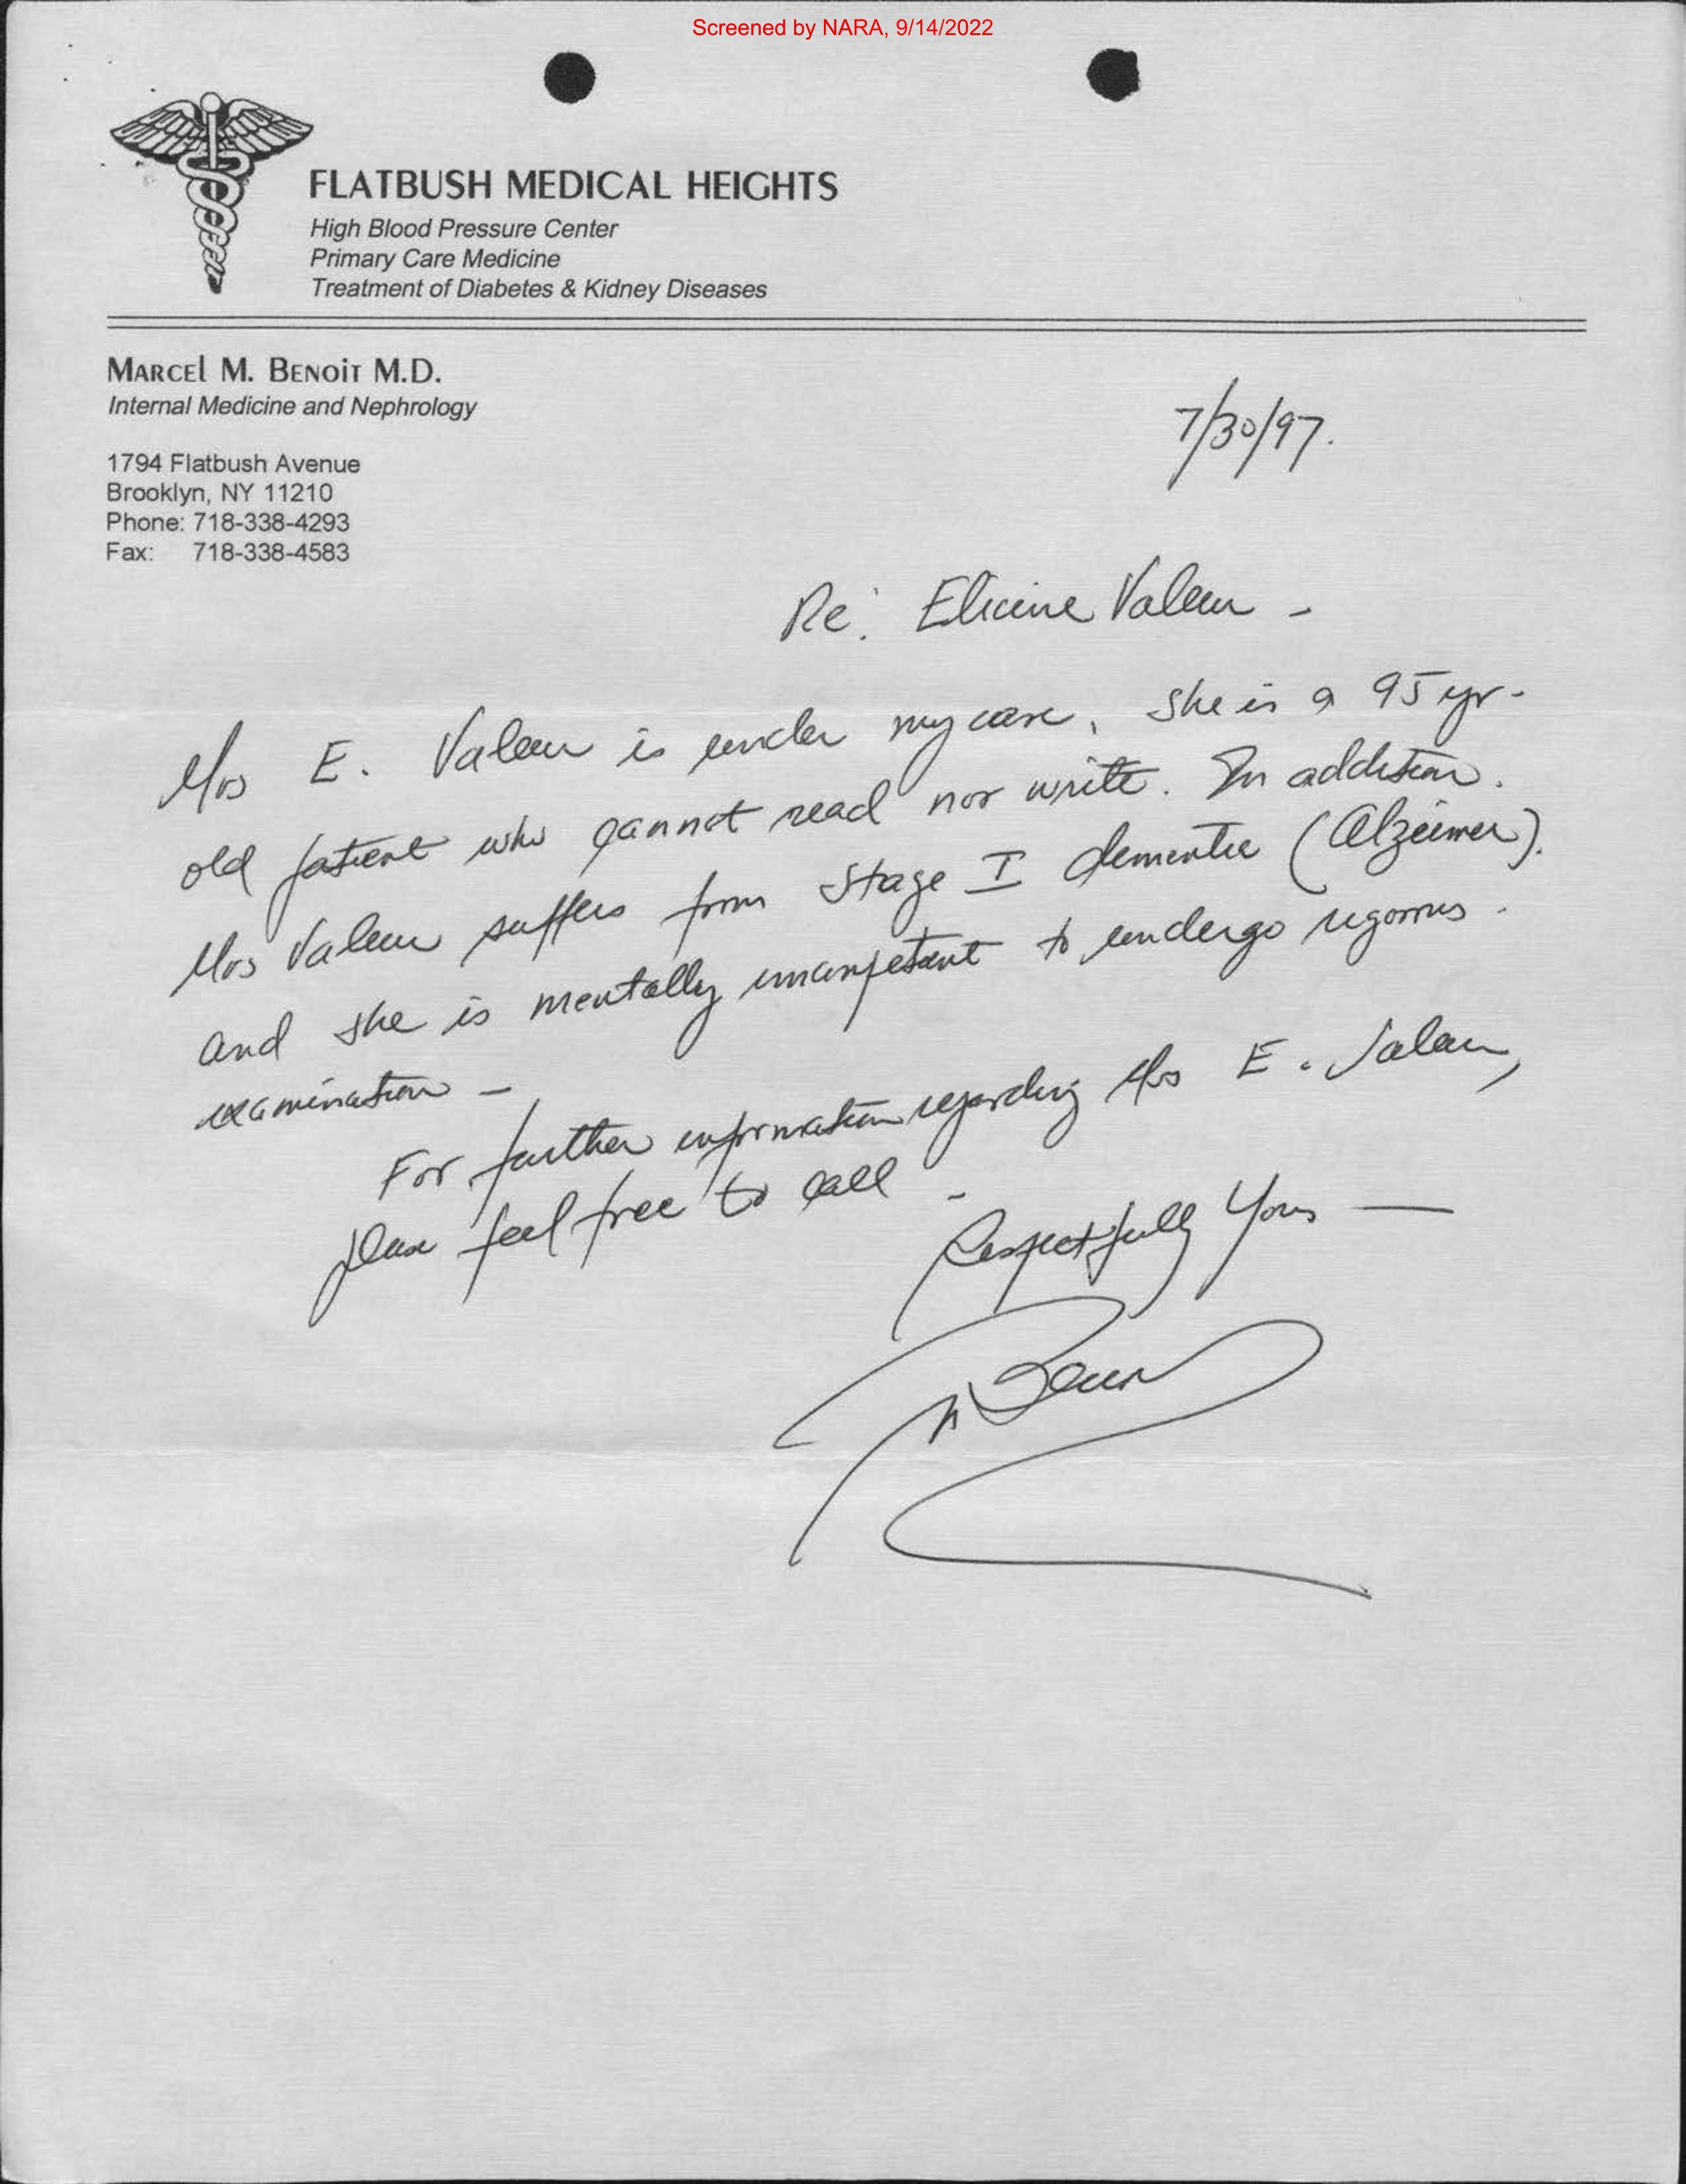 Screened by NARA, 9/14/2022
FLATBUSH MEDICAL HEIGHTS
High Blood Pressure Center
Primary Care Medicine
Treatment of Diabetes & Kidney Diseases
MARCEL M. BENOIT M.D.
Internal Medicine and Nephrology
7/30/97.
1794 Flatbush Avenue
Brooklyn, NY 11210
Phone: 718-338-4293
Fax: 718-338-4583
Re:
Mrs E. is under my care, she is a 95 yr-
old patient who cannot read nor write. In addition.
Mrs suffers from stage I dementie (Alzeimer).
and she is mentally incompetent to undergo rigorous
examination -
For further information regarding Mrs E.
please feel free to call -
Respectfully Yours —